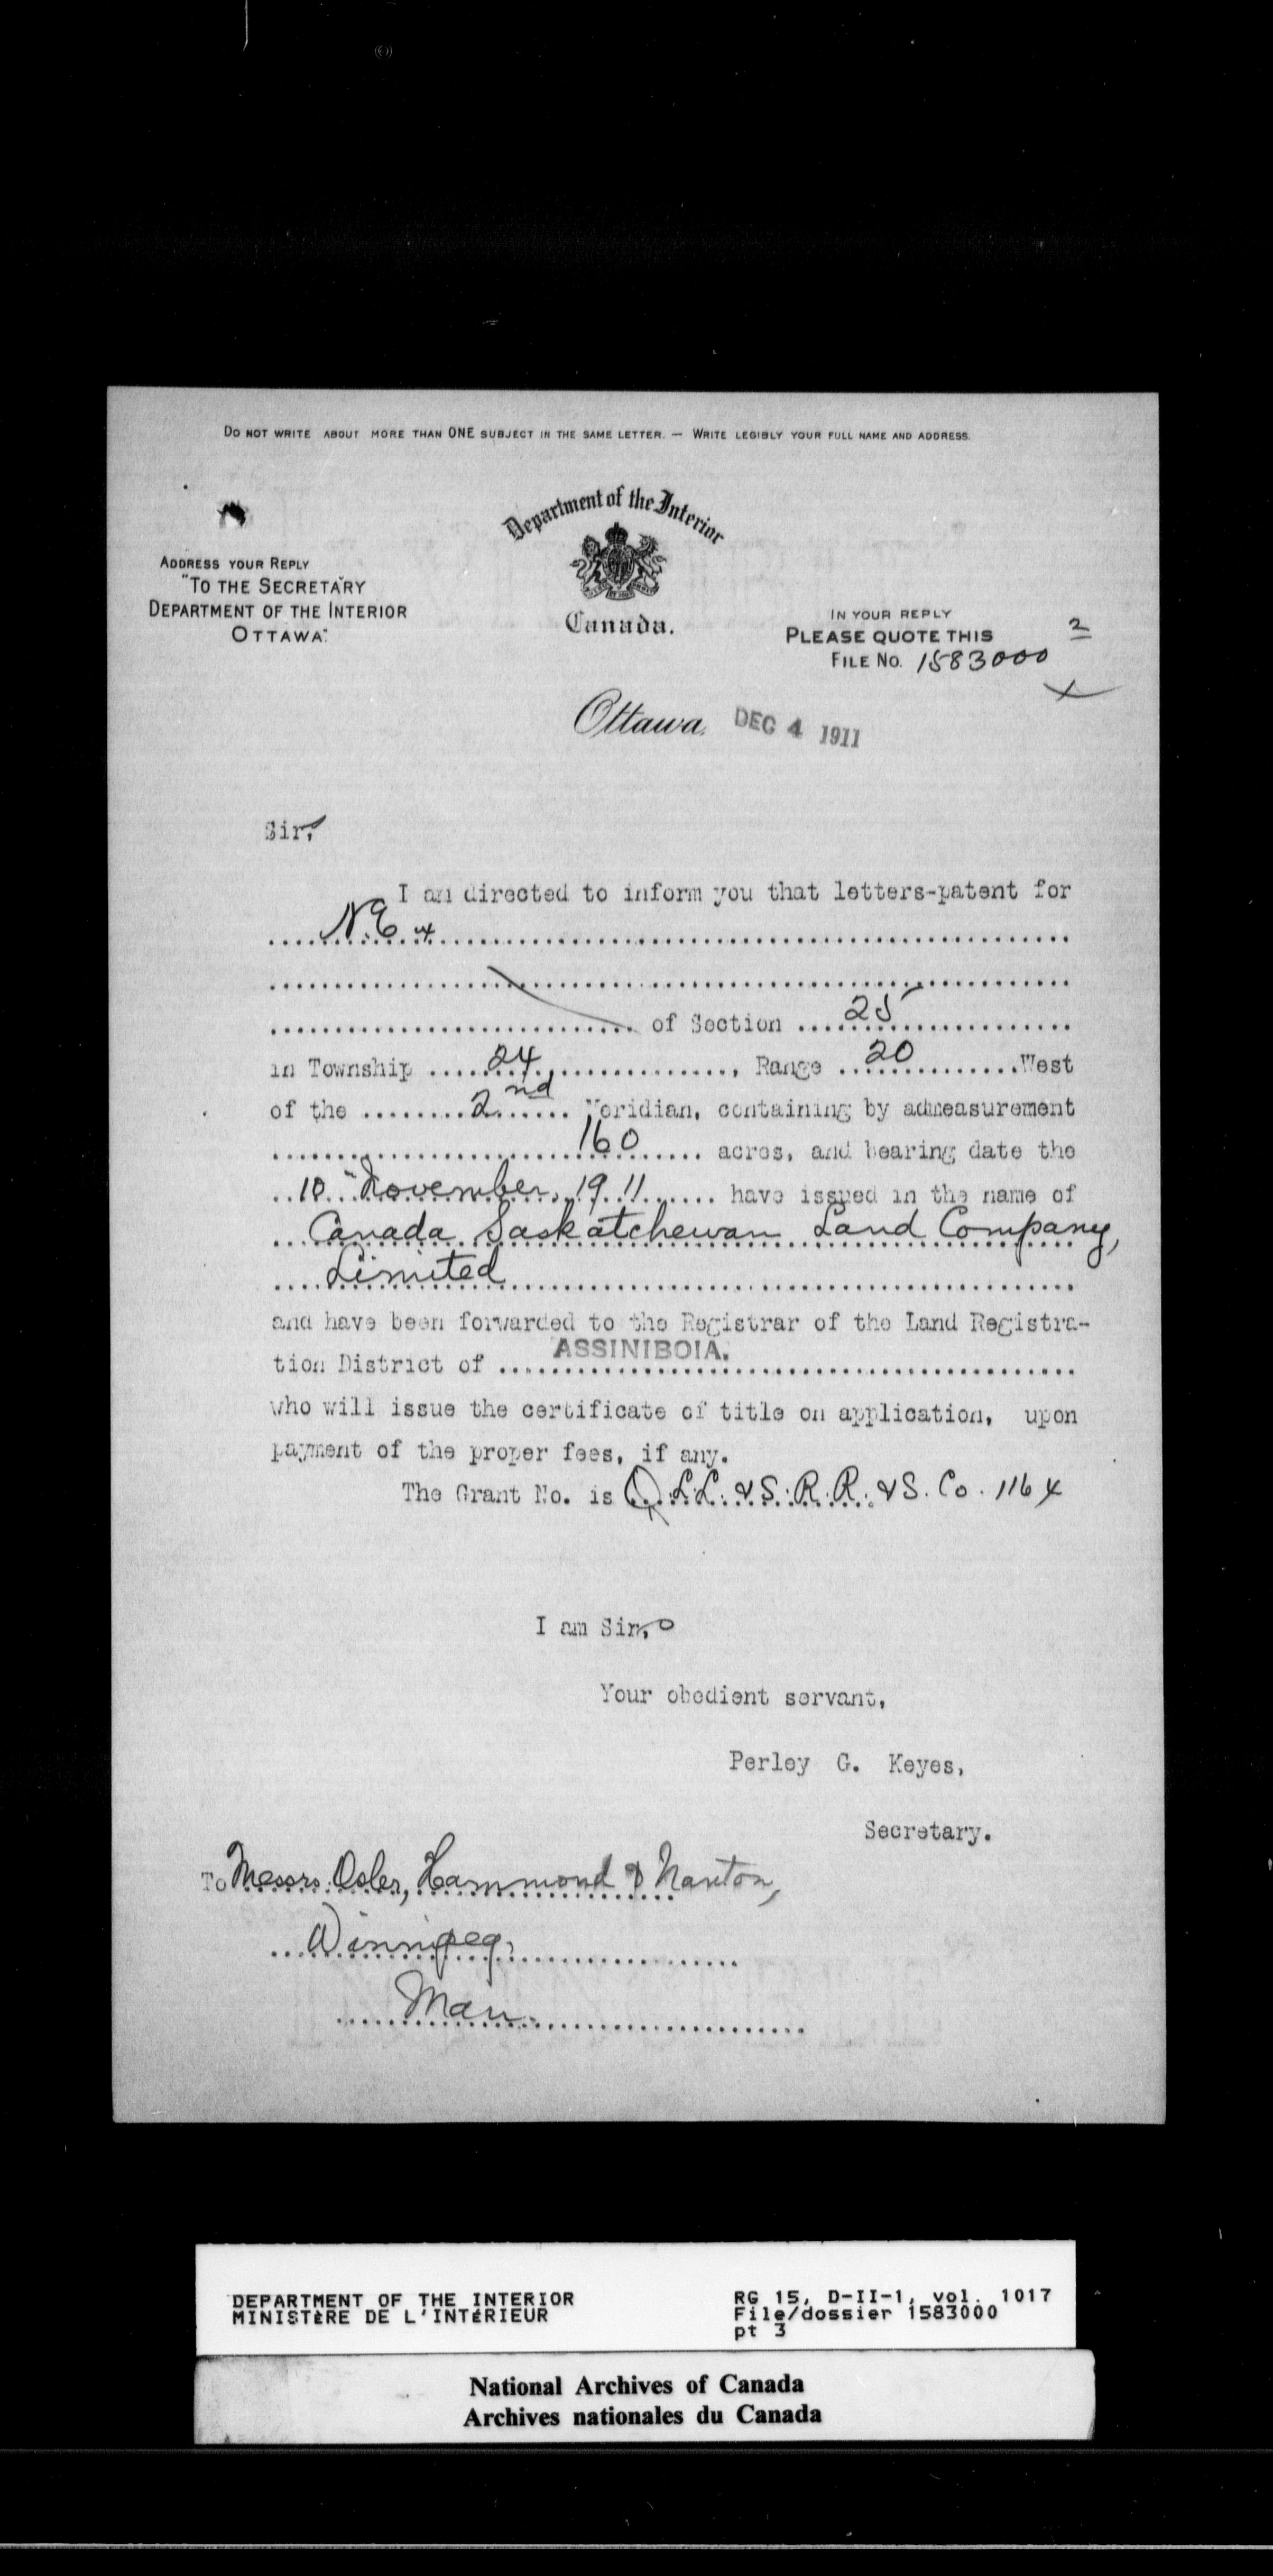 DO NOT WRITE ABOUT MORE THAN ONE SUBJECT IN THE SAME LETTER. — WRITE LEGIBLY YOUR FULL NAME AND ADDRESS.
Department of the Interior
Canada.
ADDRESS YOUR REPLY
"TO THE SECRETARY
DEPARTMENT OF THE INTERIOR
OTTAWA."
IN YOUR REPLY
PLEASE QUOTE THIS
FILE NO. 1583000 2
Ottawa, DEC 4 1911
Sir,
I am directed to inform you that letters-patent for
N.E. 4
of Section 25
in Township 24, Range 20 West
of the 2nd Meridian, containing by admeasurement
160 acres, and bearing date the
10 November, 1911 have issued in the name of
Canada Saskatchewan Land Company,
Limited
and have been forwarded to the Registrar of the Land Registra-
tion District of ASSINIBOIA.
who will issue the certificate of title on application, upon
payment of the proper fees, if any.
The Grant No. is Q.L.L. & S. R. R. & S. Co. 116 4
I am Sir,
Your obedient servant,
Perley G. Keyes,
Secretary.
To Messrs. Osler, Hammond & Nanton,
Winnipeg,
Man.
DEPARTMENT OF THE INTERIOR
MINISTÈRE DE L'INTÉRIEUR
RG 15, D-II-1, vol. 1017
File/dossier 1583000
pt 3
National Archives of Canada
Archives nationales du Canada